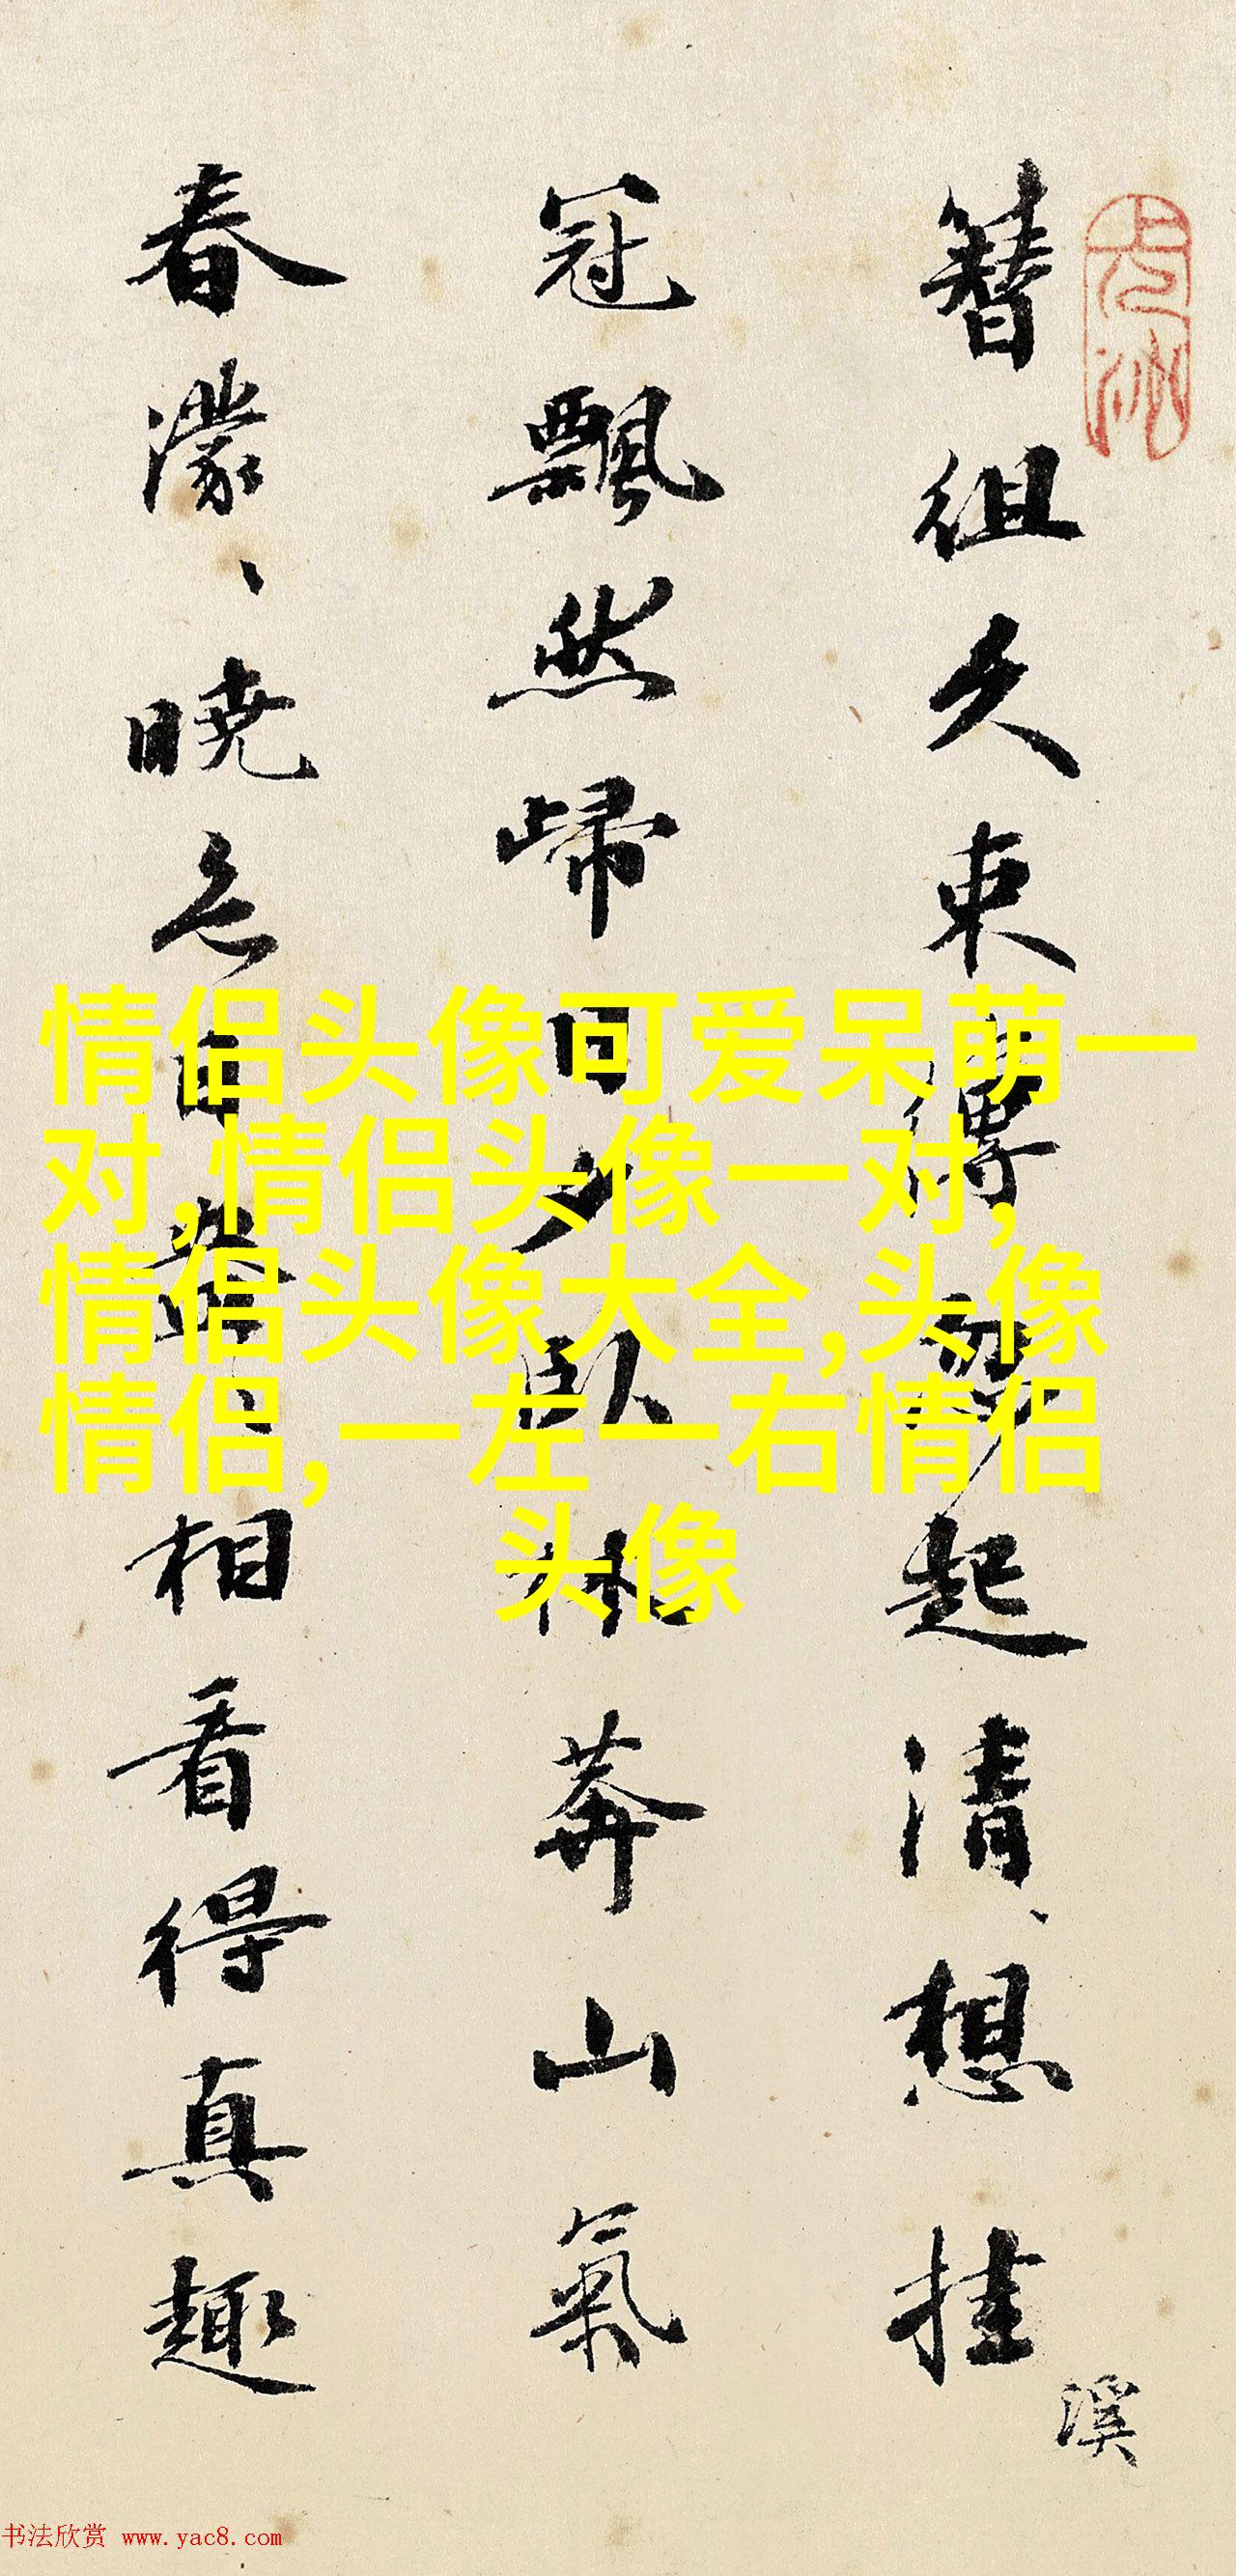 簪組久束起清、想挂
溪
冠飄然歸日夕臥林莽山氣
春濛、曉色相看得真趣
情侣头像可爱呆萌一
对,情侣头像一对,
情侣头像大全,头像
情侣,一左一右情侣
头像
书法欣赏 www.yac8.com